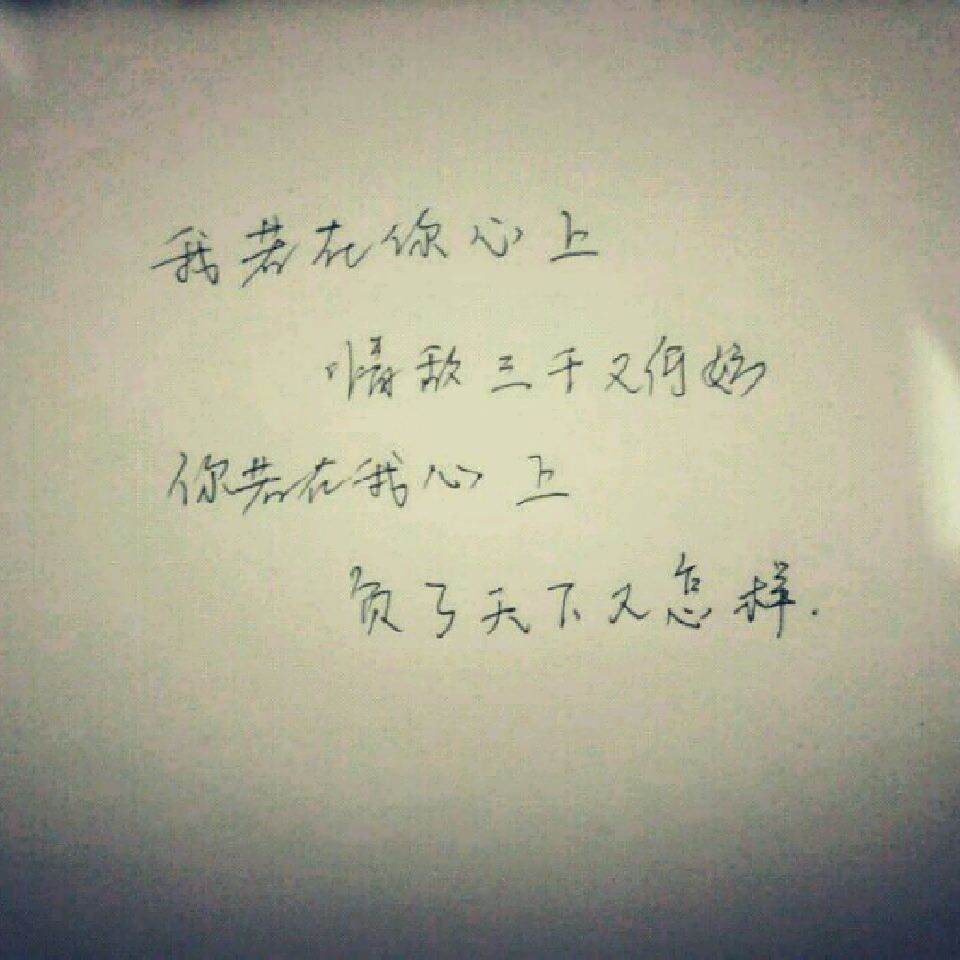 我若在你心上
情敌三千又何妨
你若在我心上
负了天下又怎样.